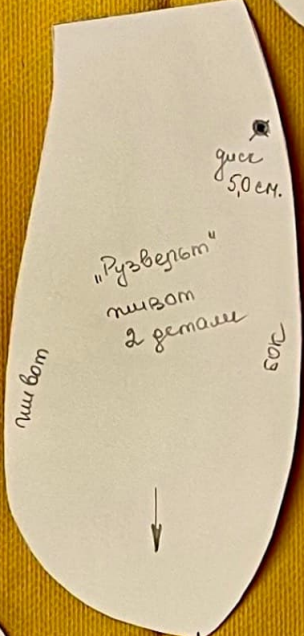 диск
5,0 см.
„Рузвельт"
живот
2 детали
живот
бок